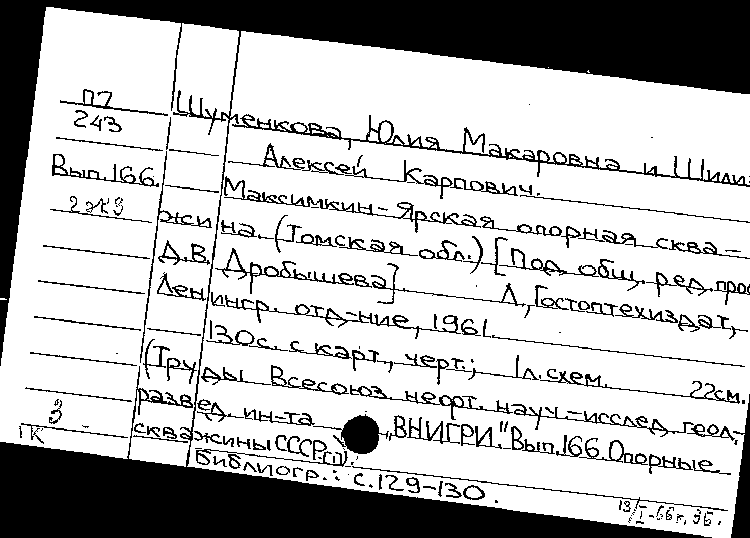 П7
243
Вып.166.
2 экз
Шуменкова, Юлия Макаровна и
Алексей Карпович.
Максимкин-Ярская опорная сква-
жина. (Томская обл.) [Под общ. ред. проф
Д.В. Дробышева]. Л., Гостоптехиздат,
Ленингр. отд-ние, 1961.
130с. с карт., черт.; 1 л. схем. 22см.
(Труды Всесоюз нефт. науч-исслед. геол.-
развед. ин-та „ВНИГРИ." Вып.166. Опорные
скважины СССР.
Библиогр.: с.129-130.
3
ПК
13/I-66г.